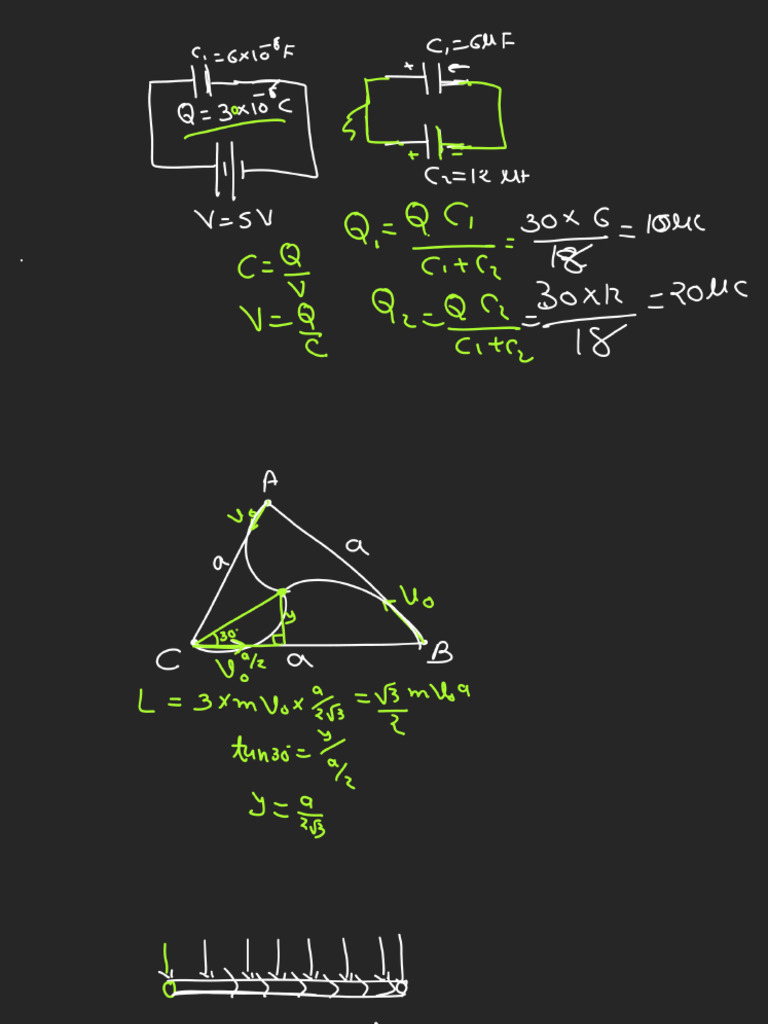 C₁=6×10⁻⁶F
Q=30×10⁻⁶C
V=5V
C₁=6μF
+ -
+ =
C₂=12 μf
C=Q/V
V=Q/C
Q₁=Q C₁/C₁+C₂=30×6/18=10μC
Q₂=Q C₂/C₁+C₂=30×12/18=20μC
A
V₀
a
a
V₀
y
30°
C
V₀
a/2
a
B
L=3×mV₀×a/2√3=√3/2 mV₀a
tan30°=y/a/2
y=a/2√3